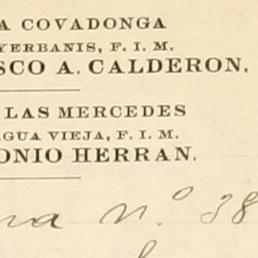 A COVADONGA
YERBANIS, F. I. M.
SCO A. CALDERON,
LAS MERCEDES
GUA VIEJA, F. I. M.
ONIO HERRAN.
na n.º 38